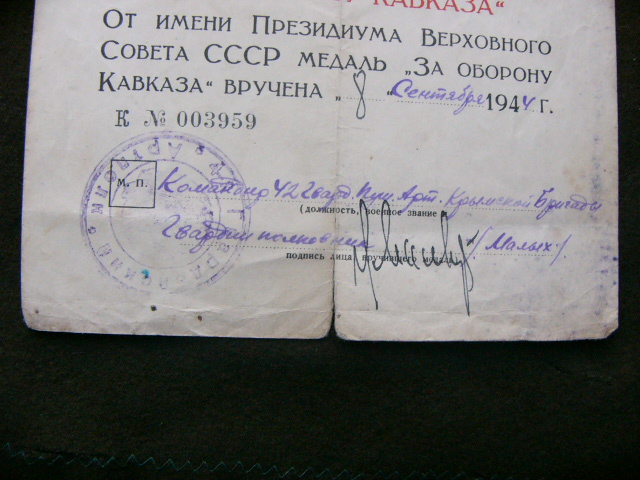 КАВКАЗА“
От имени Президиума Верховного
Совета СССР медаль „За оборону
Кавказа“ вручена „8“ Сентября 1944 г.
К № 003959
М. П.
Командир 42 Гвард. Пуш. Арт. Крымской Бригады
(должность, военное звание
Гвардии полковник (Малых)
подпись лица, вручившего медаль)